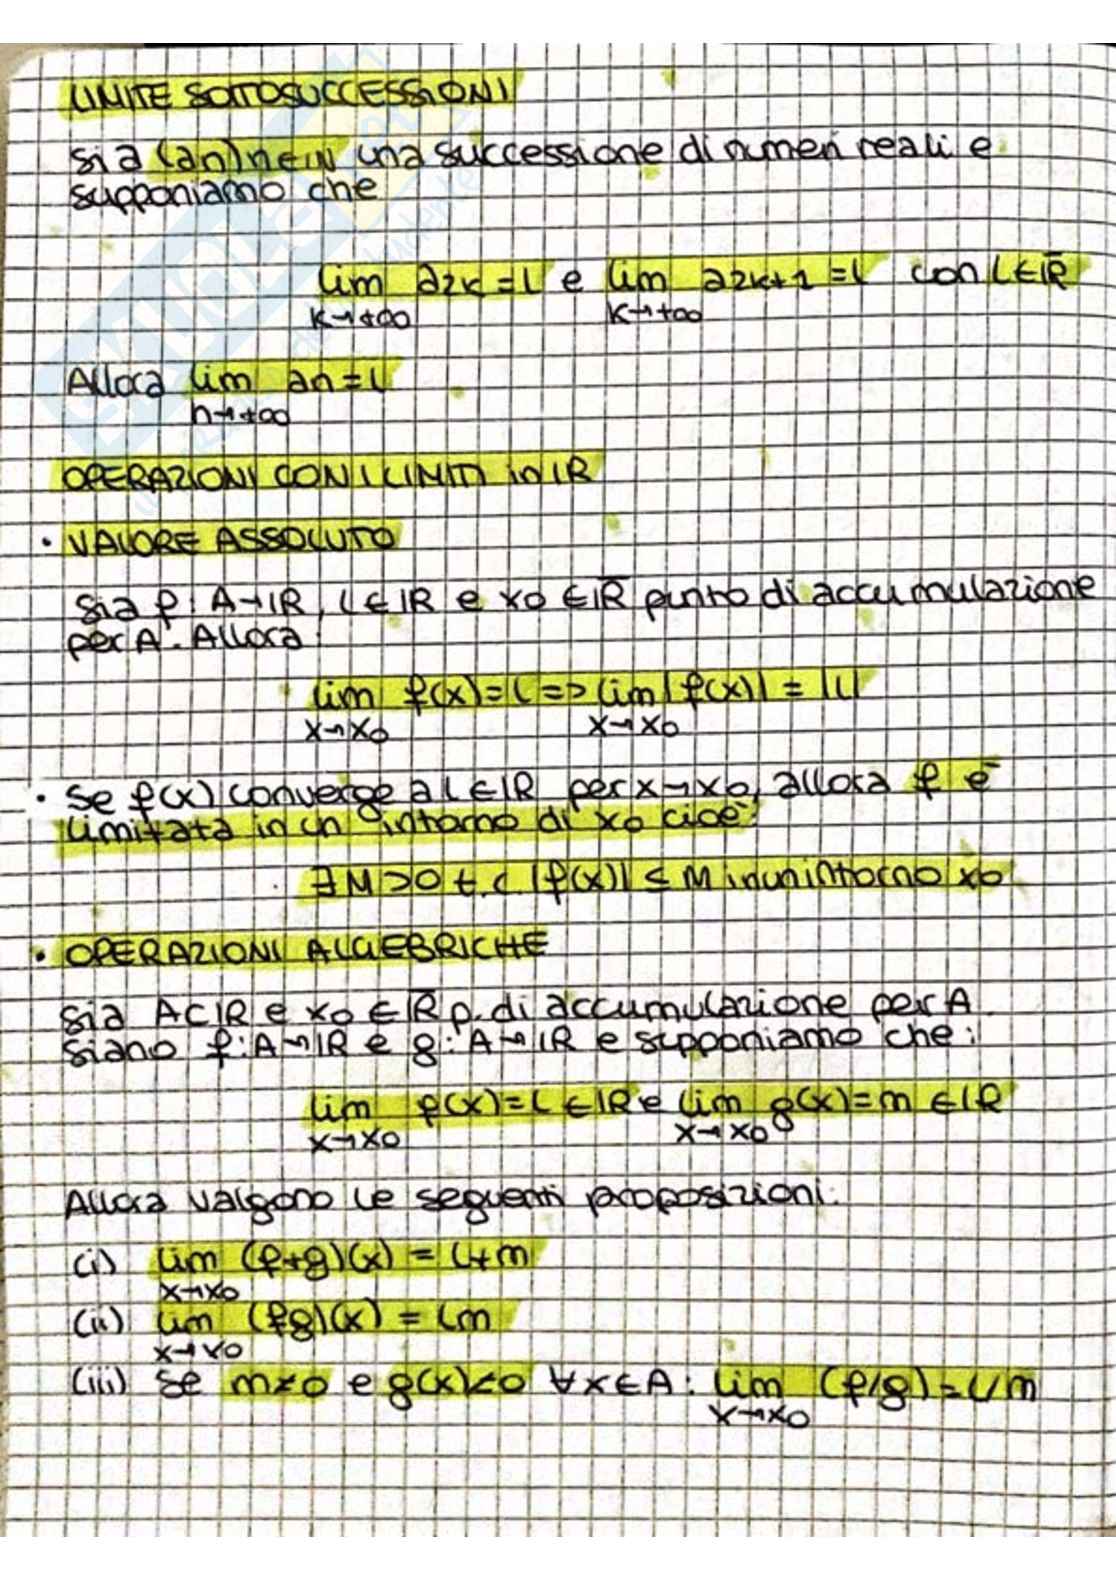 LIMITE SOTTOSUCCESSIONI
Sia (an)n∈IN una successione di numeri reali e
supponiamo che
lim a2k = l e lim a2k+1 = l con l∈IR̅
k→+∞ k→+∞
Allora lim an = l
n→+∞
OPERAZIONI CON I LIMITI in IR
• VALORE ASSOLUTO
Sia f: A→IR, l∈IR e x0 ∈IR̅ punto di accumulazione
per A. Allora
lim f(x)=l => lim |f(x)| = |l|
x→x0 x→x0
• Se f(x) converge a l∈IR per x→x0, allora f è
limitata in un intorno di x0 cioè:
∃ M>0 t.c |f(x)| ≤ M in un intorno x0
• OPERAZIONI ALGEBRICHE
Sia A⊂IR e x0 ∈IR̅ p. di accumulazione per A.
siano f: A→IR e g: A→IR e supponiamo che:
lim f(x)=l ∈IR e lim g(x)=m ∈IR
x→x0 x→x0
Allora valgono le seguenti proposizioni:
(i) lim (f+g)(x) = l+m
x→x0
(ii) lim (fg)(x) = lm
x→x0
(iii) Se m≠0 e g(x)≠0 ∀x∈A: lim (f/g)=l/m
x→x0